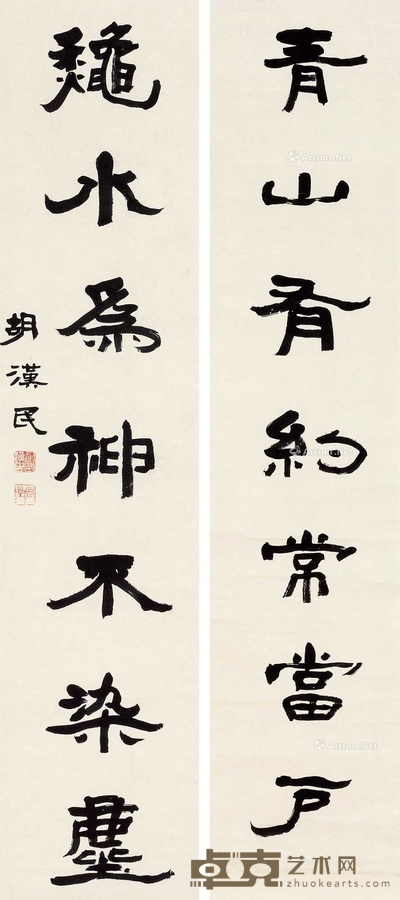 青山有約常當戶
龝水爲神不染塵
胡漢民
Artron.Net
Artron.Net
卓克艺术网
zhuokearts.com